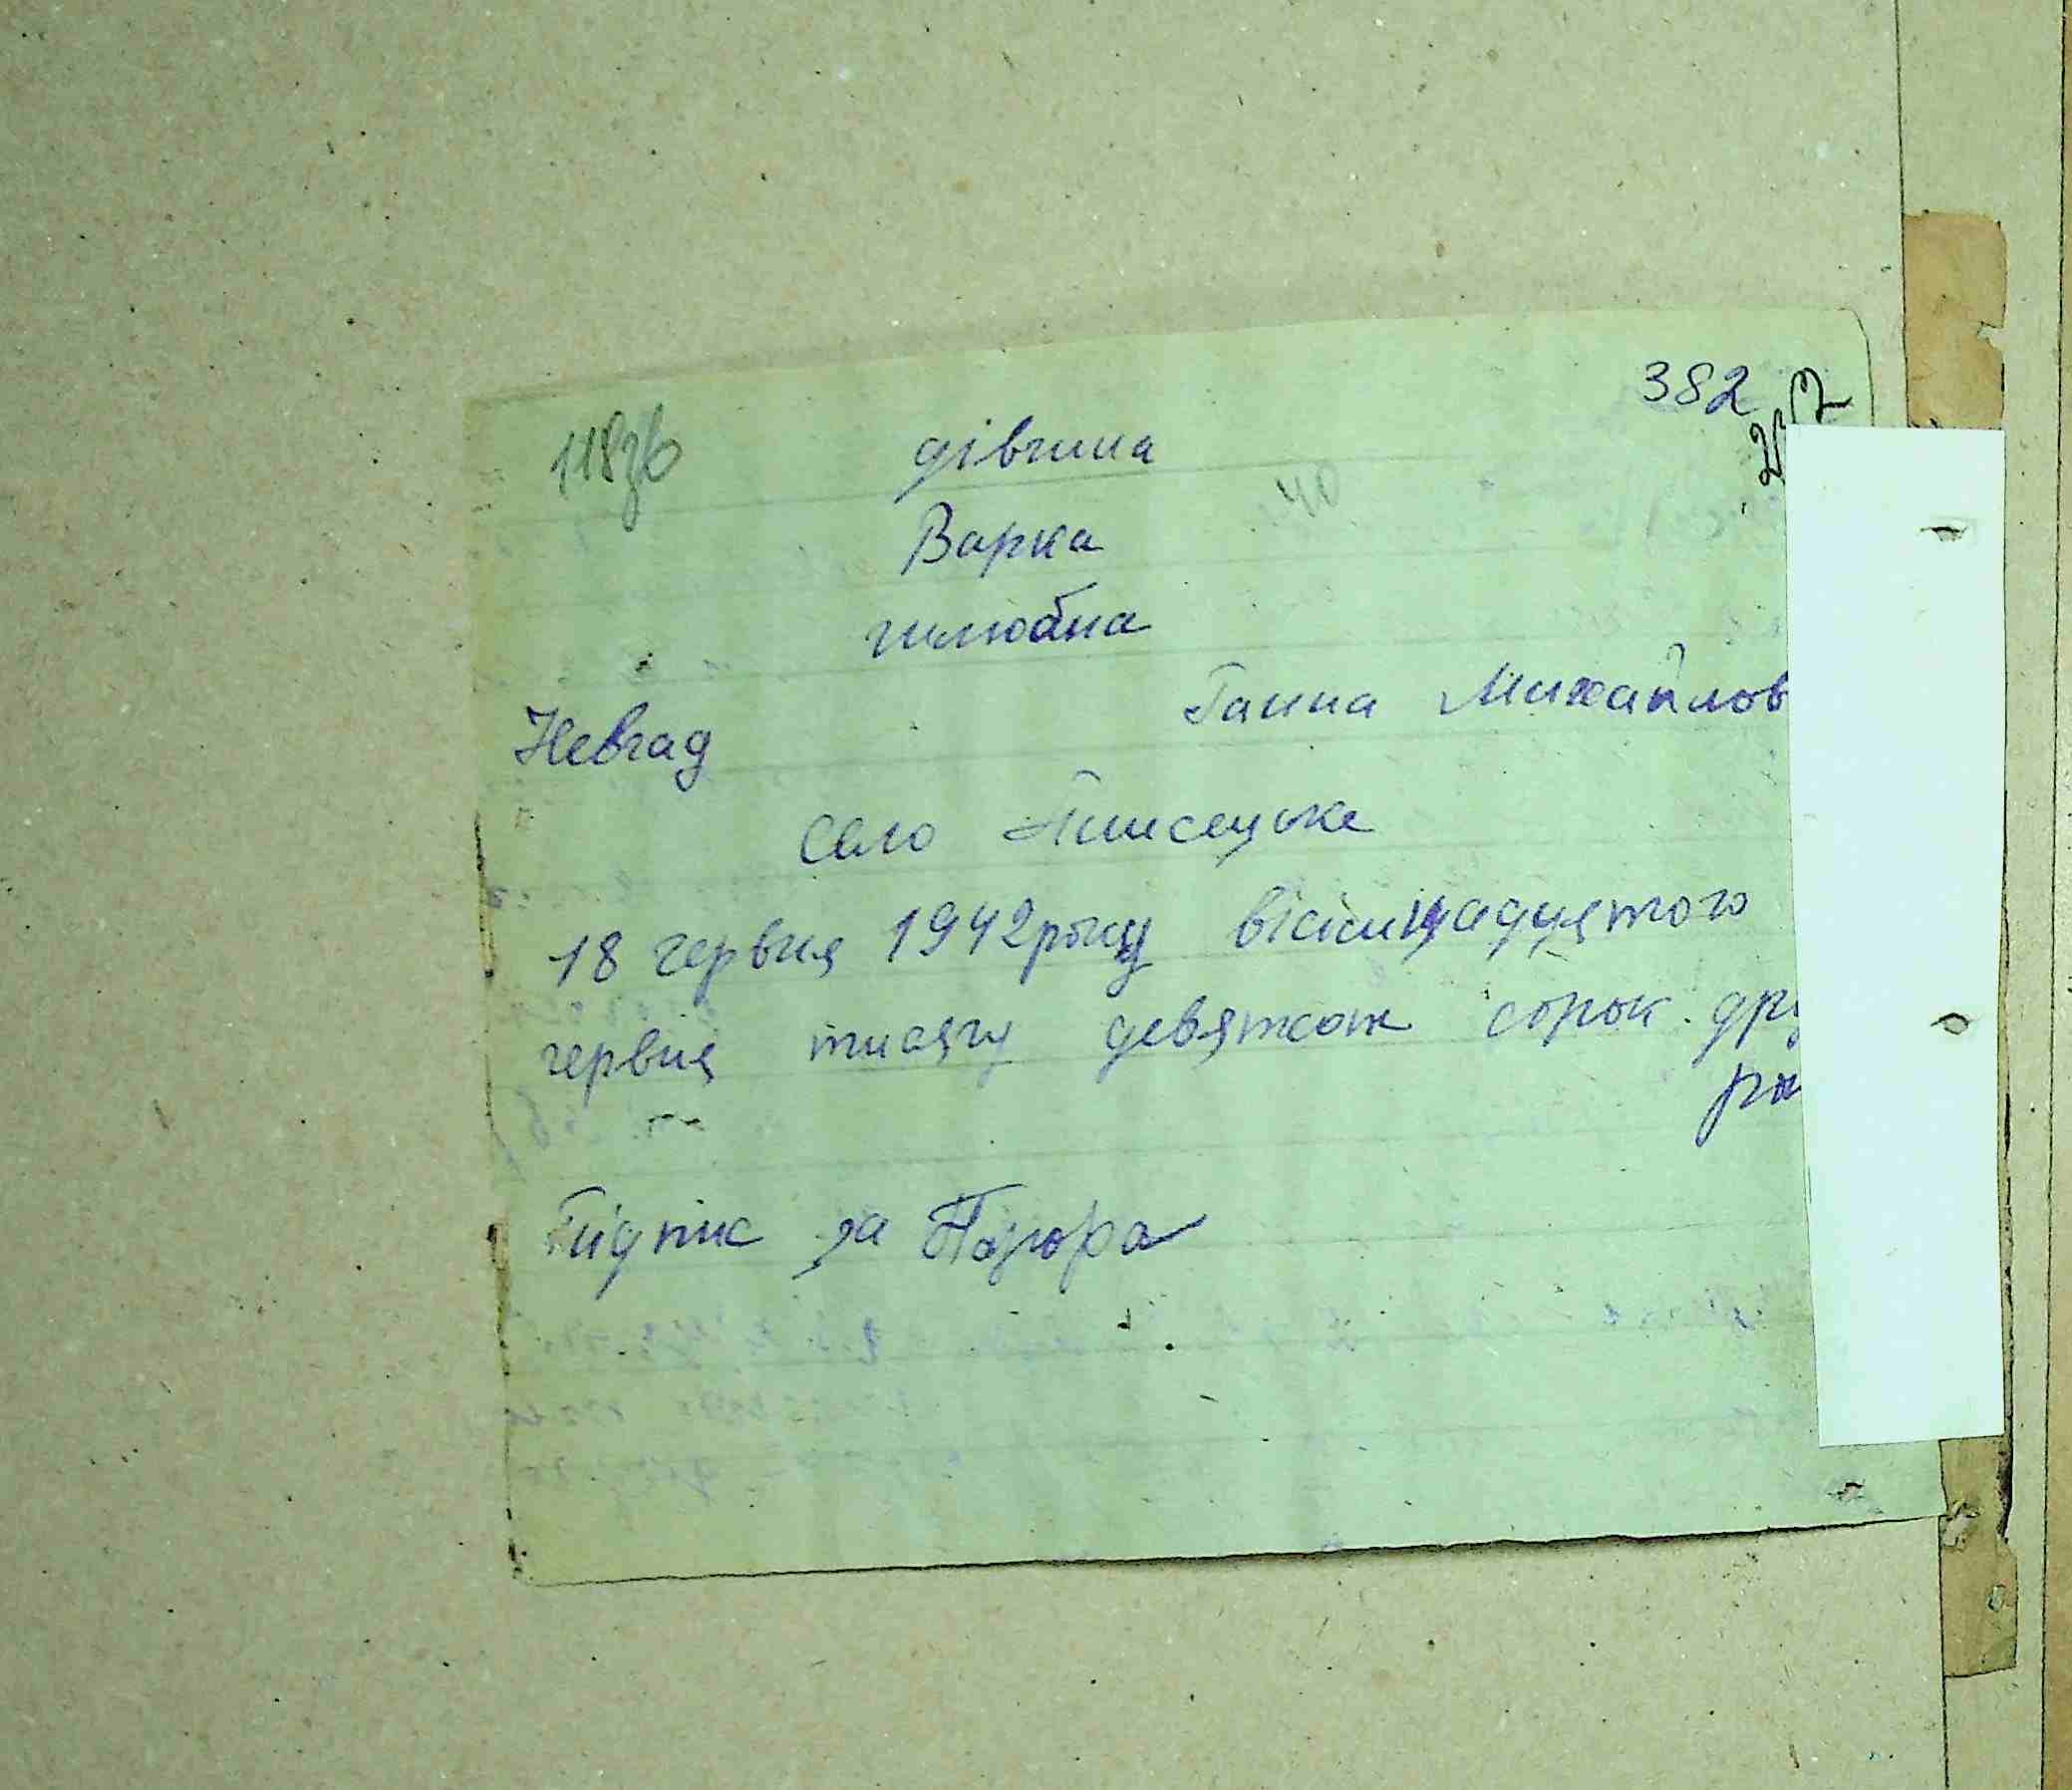 382
дівчина
Варка
шлюбна
Невгад Ганна Михайлов
село
18 червня 1942 року вісімнадцятого
червня тисячу девятсот сорок дру
ро
Підпис за